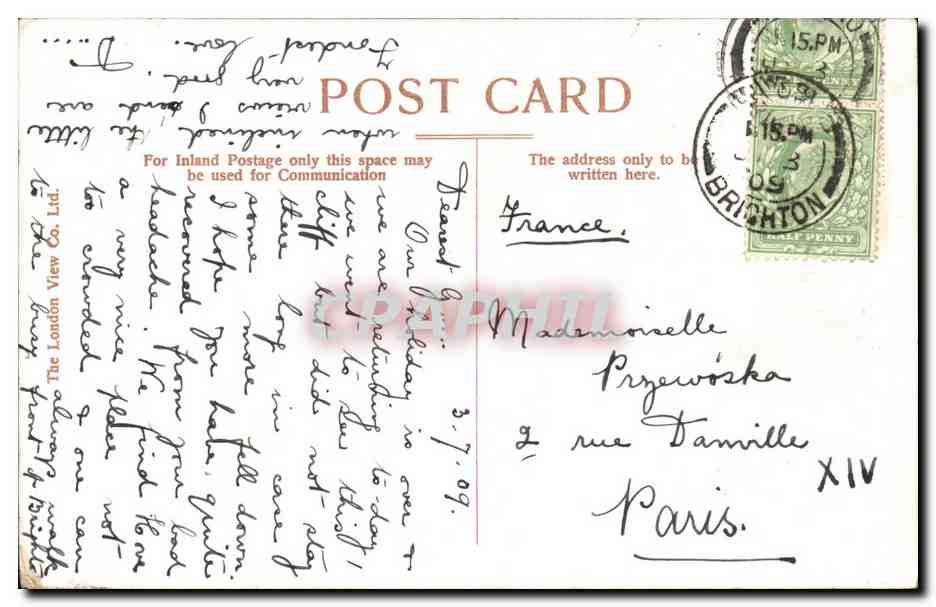 POST CARD
For Inland Postage only this space may
be used for Communication
The address only to be
written here.
The London View Co. Ltd.
3.7.09.
Dearest G....
Our holiday is over &
we are returning to-day,
we went to see this
cliff but did not stay
there long in case
some more fell down.
I hope you have quite
recovered from your bad
headache. We find Hove
a very nice place not
too crowded & one can
always walk
to the busy front of Brighton
when inclined the little
views I send are
very good.
Fondest love.
D.....
France.
Mademoiselle
Przewóska
2 rue Danville
Paris.
XIV
15.PM
1.15.PM
3
09
BRIGHTON
HALF PENNY
CPAPHIL